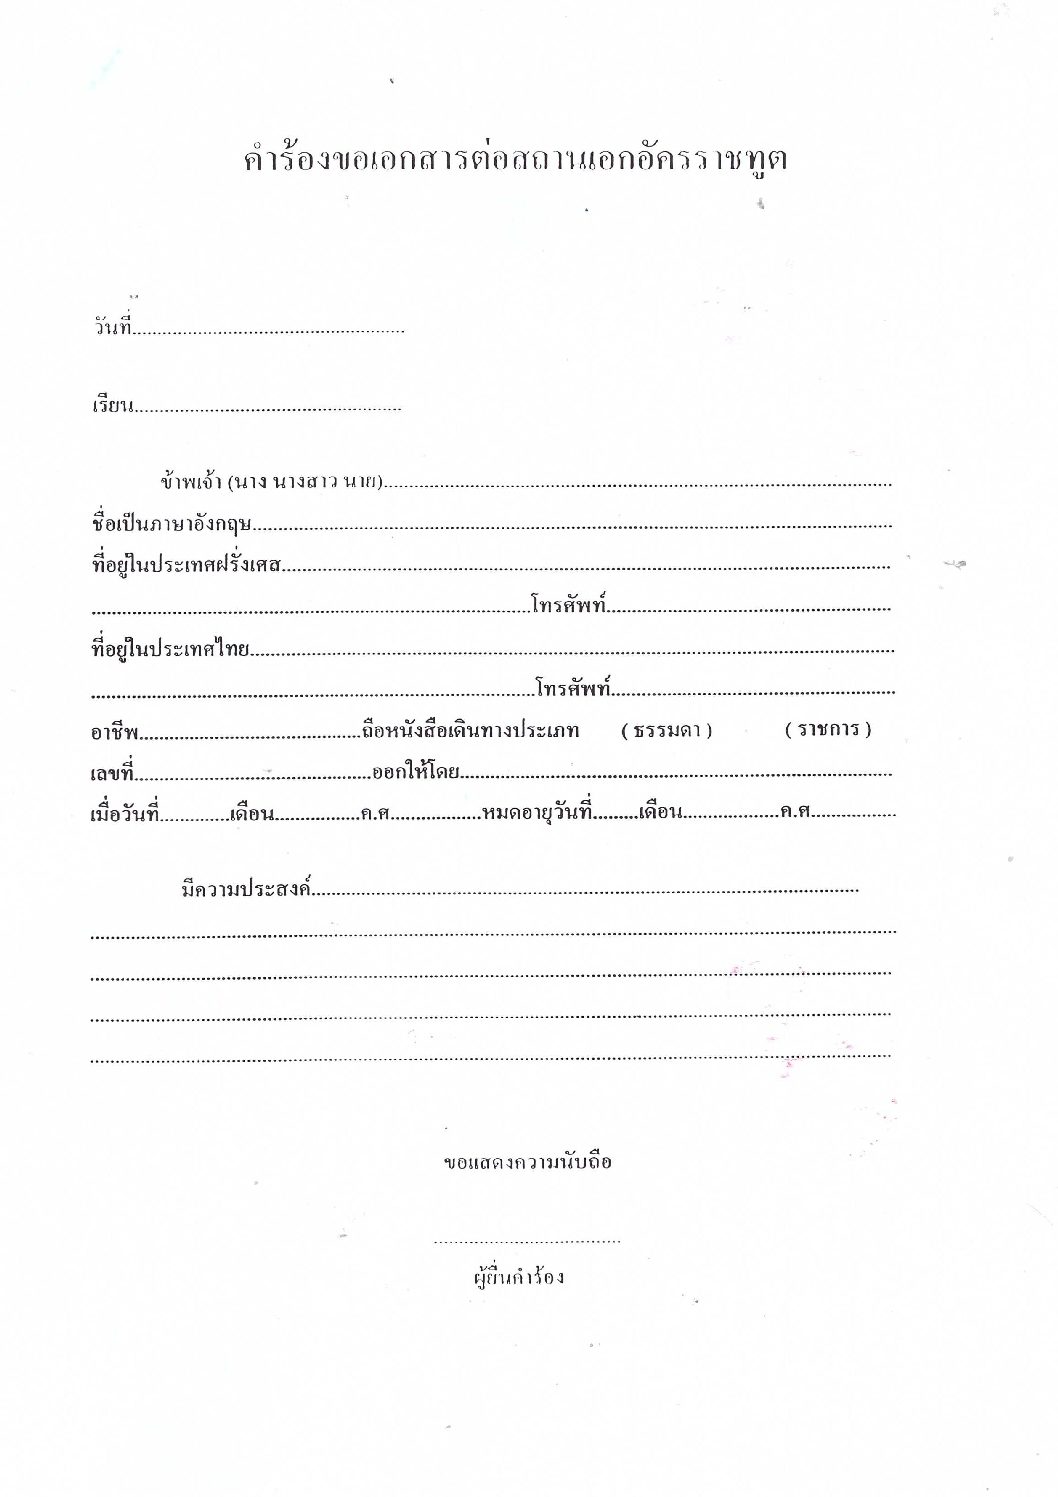 คำร้องขอเอกสารต่อสถานเอกอัครราชทูต
วันที่......................................................
เรียน.....................................................
ข้าพเจ้า (นาง นางสาว นาย)....................................................................................................
ชื่อเป็นภาษาอังกฤษ..............................................................................................................................
ที่อยู่ในประเทศฝรั่งเศส........................................................................................................................
.......................................................................................โทรศัพท์........................................................
ที่อยู่ในประเทศไทย...............................................................................................................................
........................................................................................โทรศัพท์........................................................
อาชีพ............................................ถือหนังสือเดินทางประเภท ( ธรรมดา ) ( ราชการ )
เลขที่...............................................ออกให้โดย.....................................................................................
เมื่อวันที่..............เดือน.................ค.ศ..................หมดอายุวันที่.........เดือน...................ค.ศ.................
มีความประสงค์............................................................................................................
................................................................................................................................................................
................................................................................................................................................................
................................................................................................................................................................
................................................................................................................................................................
ขอแสดงความนับถือ
.....................................
ผู้ยื่นคำร้อง